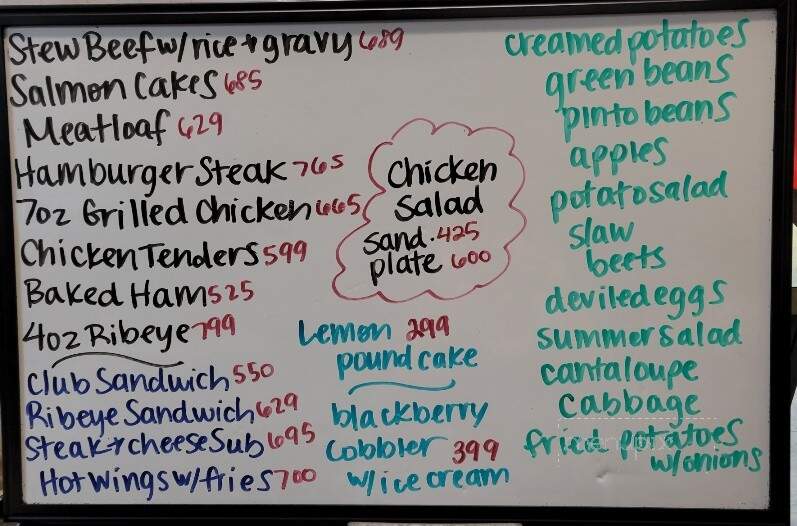 Stew Beef w/rice + gravy 689
Salmon Cakes 685
Meatloaf 629
Hamburger Steak 765
7oz Grilled Chicken 665
Chicken Tenders 599
Baked Ham 525
4oz Ribeye 799
Club Sandwich 550
Ribeye Sandwich 629
Steak + cheese Sub 695
Hot wings w/fries 700
Chicken
Salad
sand. 425
plate 600
Lemon 299
pound cake
blackberry
Cobbler 399
w/ice cream
creamed potatoes
green beans
pinto beans
apples
potato salad
slaw
beets
deviled eggs
summer salad
cantaloupe
cabbage
fried potatoes
w/onions